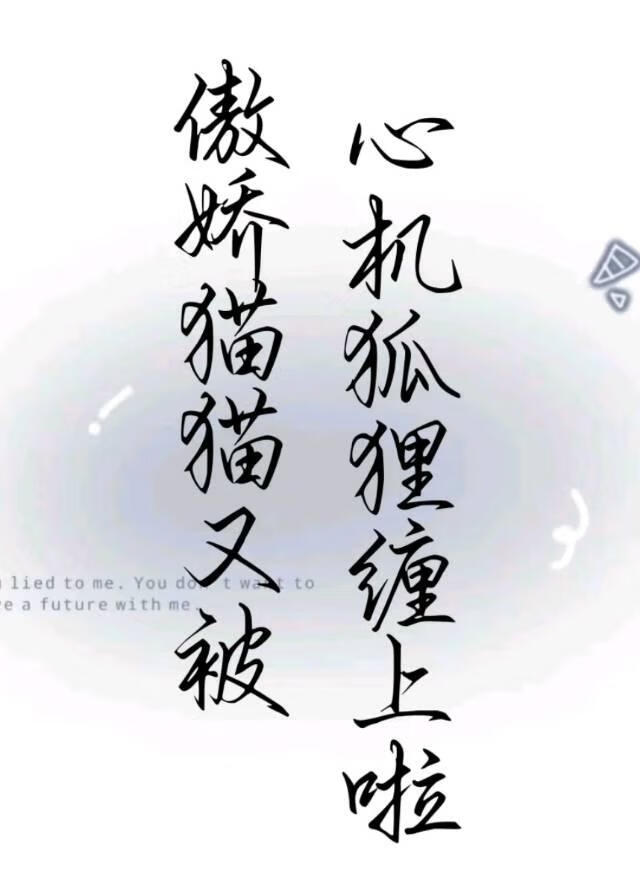 傲娇猫猫又被
心机狐狸缠上啦
lied to me. You don't want to
a future with me.